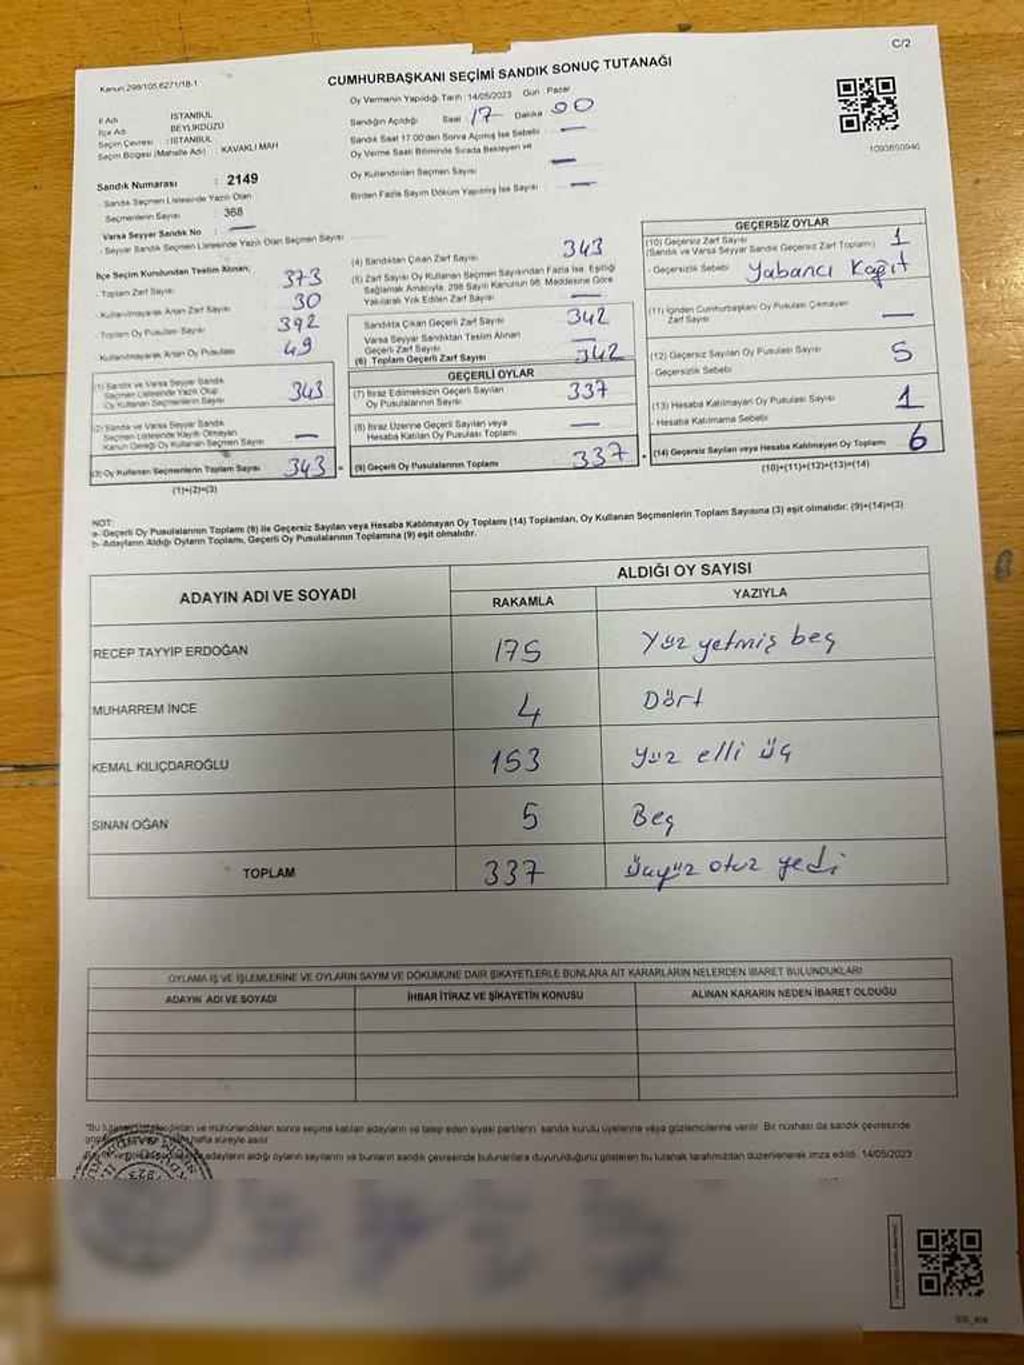 C/2
Kanun 298/105,6271/18-1
CUMHURBAŞKANI SEÇİMİ SANDIK SONUÇ TUTANAĞI
İl Adı : İSTANBUL
İlçe Adı : BEYLİKDÜZÜ
Seçim Çevresi : İSTANBUL
Seçim Bölgesi (Mahalle Adı) : KAVAKLI MAH
Oy Vermenin Yapıldığı Tarih : 14/05/2023 Gün : Pazar
Sandığın Açıldığı Saat : 17 Dakika 00
Sandık Saat 17.00'den Sonra Açılmış İse Sebebi : —
Oy Verme Saati Bitiminde Sırada Bekleyen ve
Oy Kullandırılan Seçmen Sayısı —
Birden Fazla Sayım Döküm Yapılmış İse Sayısı —
Sandık Numarası : 2149
Sandık Seçmen Listesinde Yazılı Olan
Seçmenlerin Sayısı : 368
Varsa Seyyar Sandık No : —
- Seyyar Sandık Seçmen Listesinde Yazılı Olan Seçmen Sayısı
İlçe Seçim Kurulundan Teslim Alınan;
- Toplam Zarf Sayısı 373
- Kullanılmayarak Artan Zarf Sayısı 30
- Toplam Oy Pusulası Sayısı 392
- Kullanılmayarak Artan Oy Pusulası 49
(1) Sandık ve Varsa Seyyar Sandık
Seçmen Listesinde Yazılı Olup
Oy Kullanan Seçmenlerin Sayısı 343
(2) Sandık ve Varsa Seyyar Sandık
Seçmen Listesinde Kayıtlı Olmayan
Kanun Gereği Oy Kullanan Seçmen Sayısı —
(3) Oy Kullanan Seçmenlerin Toplam Sayısı 343 =
(1)+(2)=(3)
(4) Sandıktan Çıkan Zarf Sayısı 343
(5) Zarf Sayısı Oy Kullanan Seçmen Sayısından Fazla İse, Eşitliği
Sağlamak Amacıyla, 298 Sayılı Kanunun 98. Maddesine Göre
Yakılarak Yok Edilen Zarf Sayısı —
Sandıkta Çıkan Geçerli Zarf Sayısı 342
Varsa Seyyar Sandıktan Teslim Alınan
Geçerli Zarf Sayısı —
(6) Toplam Geçerli Zarf Sayısı 342
GEÇERLİ OYLAR
(7) İtiraz Edilmeksizin Geçerli Sayılan
Oy Pusulalarının Sayısı 337
(8) İtiraz Üzerine Geçerli Sayılan veya
Hesaba Katılan Oy Pusulası Toplamı —
(9) Geçerli Oy Pusulalarının Toplamı 337 +
GEÇERSİZ OYLAR
(10) Geçersiz Zarf Sayısı
(Sandık ve Varsa Seyyar Sandık Geçersiz Zarf Toplamı) 1
- Geçersizlik Sebebi Yabancı Kağıt
(11) İçinden Cumhurbaşkanı Oy Pusulası Çıkmayan
Zarf Sayısı —
(12) Geçersiz Sayılan Oy Pusulası Sayısı 5
- Geçersizlik Sebebi
(13) Hesaba Katılmayan Oy Pusulası Sayısı 1
- Hesaba Katılmama Sebebi
(14) Geçersiz Sayılan veya Hesaba Katılmayan Oy Toplamı 6
(10)+(11)+(12)+(13)=(14)
NOT:
a- Geçerli Oy Pusulalarının Toplamı (9) ile Geçersiz Sayılan veya Hesaba Katılmayan Oy Toplamı (14) Toplamları, Oy Kullanan Seçmenlerin Toplam Sayısına (3) eşit olmalıdır. (9)+(14)=(3)
b- Adayların Aldığı Oyların Toplamı, Geçerli Oy Pusulalarının Toplamına (9) eşit olmalıdır.
ADAYIN ADI VE SOYADI
ALDIĞI OY SAYISI
RAKAMLA YAZIYLA
RECEP TAYYİP ERDOĞAN 175 Yüz yetmiş beş
MUHARREM İNCE 4 Dört
KEMAL KILIÇDAROĞLU 153 Yüz elli üç
SİNAN OĞAN 5 Beş
TOPLAM 337 Üçyüz otuz yedi
OYLAMA İŞ VE İŞLEMLERİNE VE OYLARIN SAYIM VE DÖKÜMÜNE DAİR ŞİKAYETLERLE BUNLARA AİT KARARLARIN NELERDEN İBARET BULUNDUKLARI
ADAYIN ADI VE SOYADI İHBAR İTİRAZ VE ŞİKAYETİN KONUSU ALINAN KARARIN NEDEN İBARET OLDUĞU
ve mühürlendikten sonra seçime katılan adayların ve talep eden siyasi partilerin sandık kurulu üyelerine veya gözlemcilerine verilir. Bir nüshası da sandık çevresinde
hafta süreyle asılır
adayların aldığı oyların sayılarını ve bunların sandık çevresinde bulunanlara duyurulduğunu gösteren bu tutanak tarafımızdan düzenlenerek imza edildi. 14/05/2023